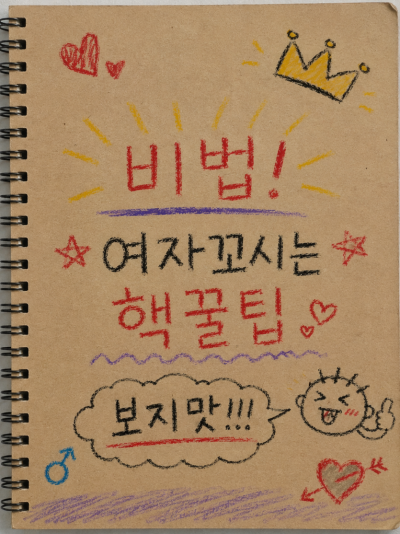 비법!
여자꼬시는
핵꿀팁
보지맛!!!